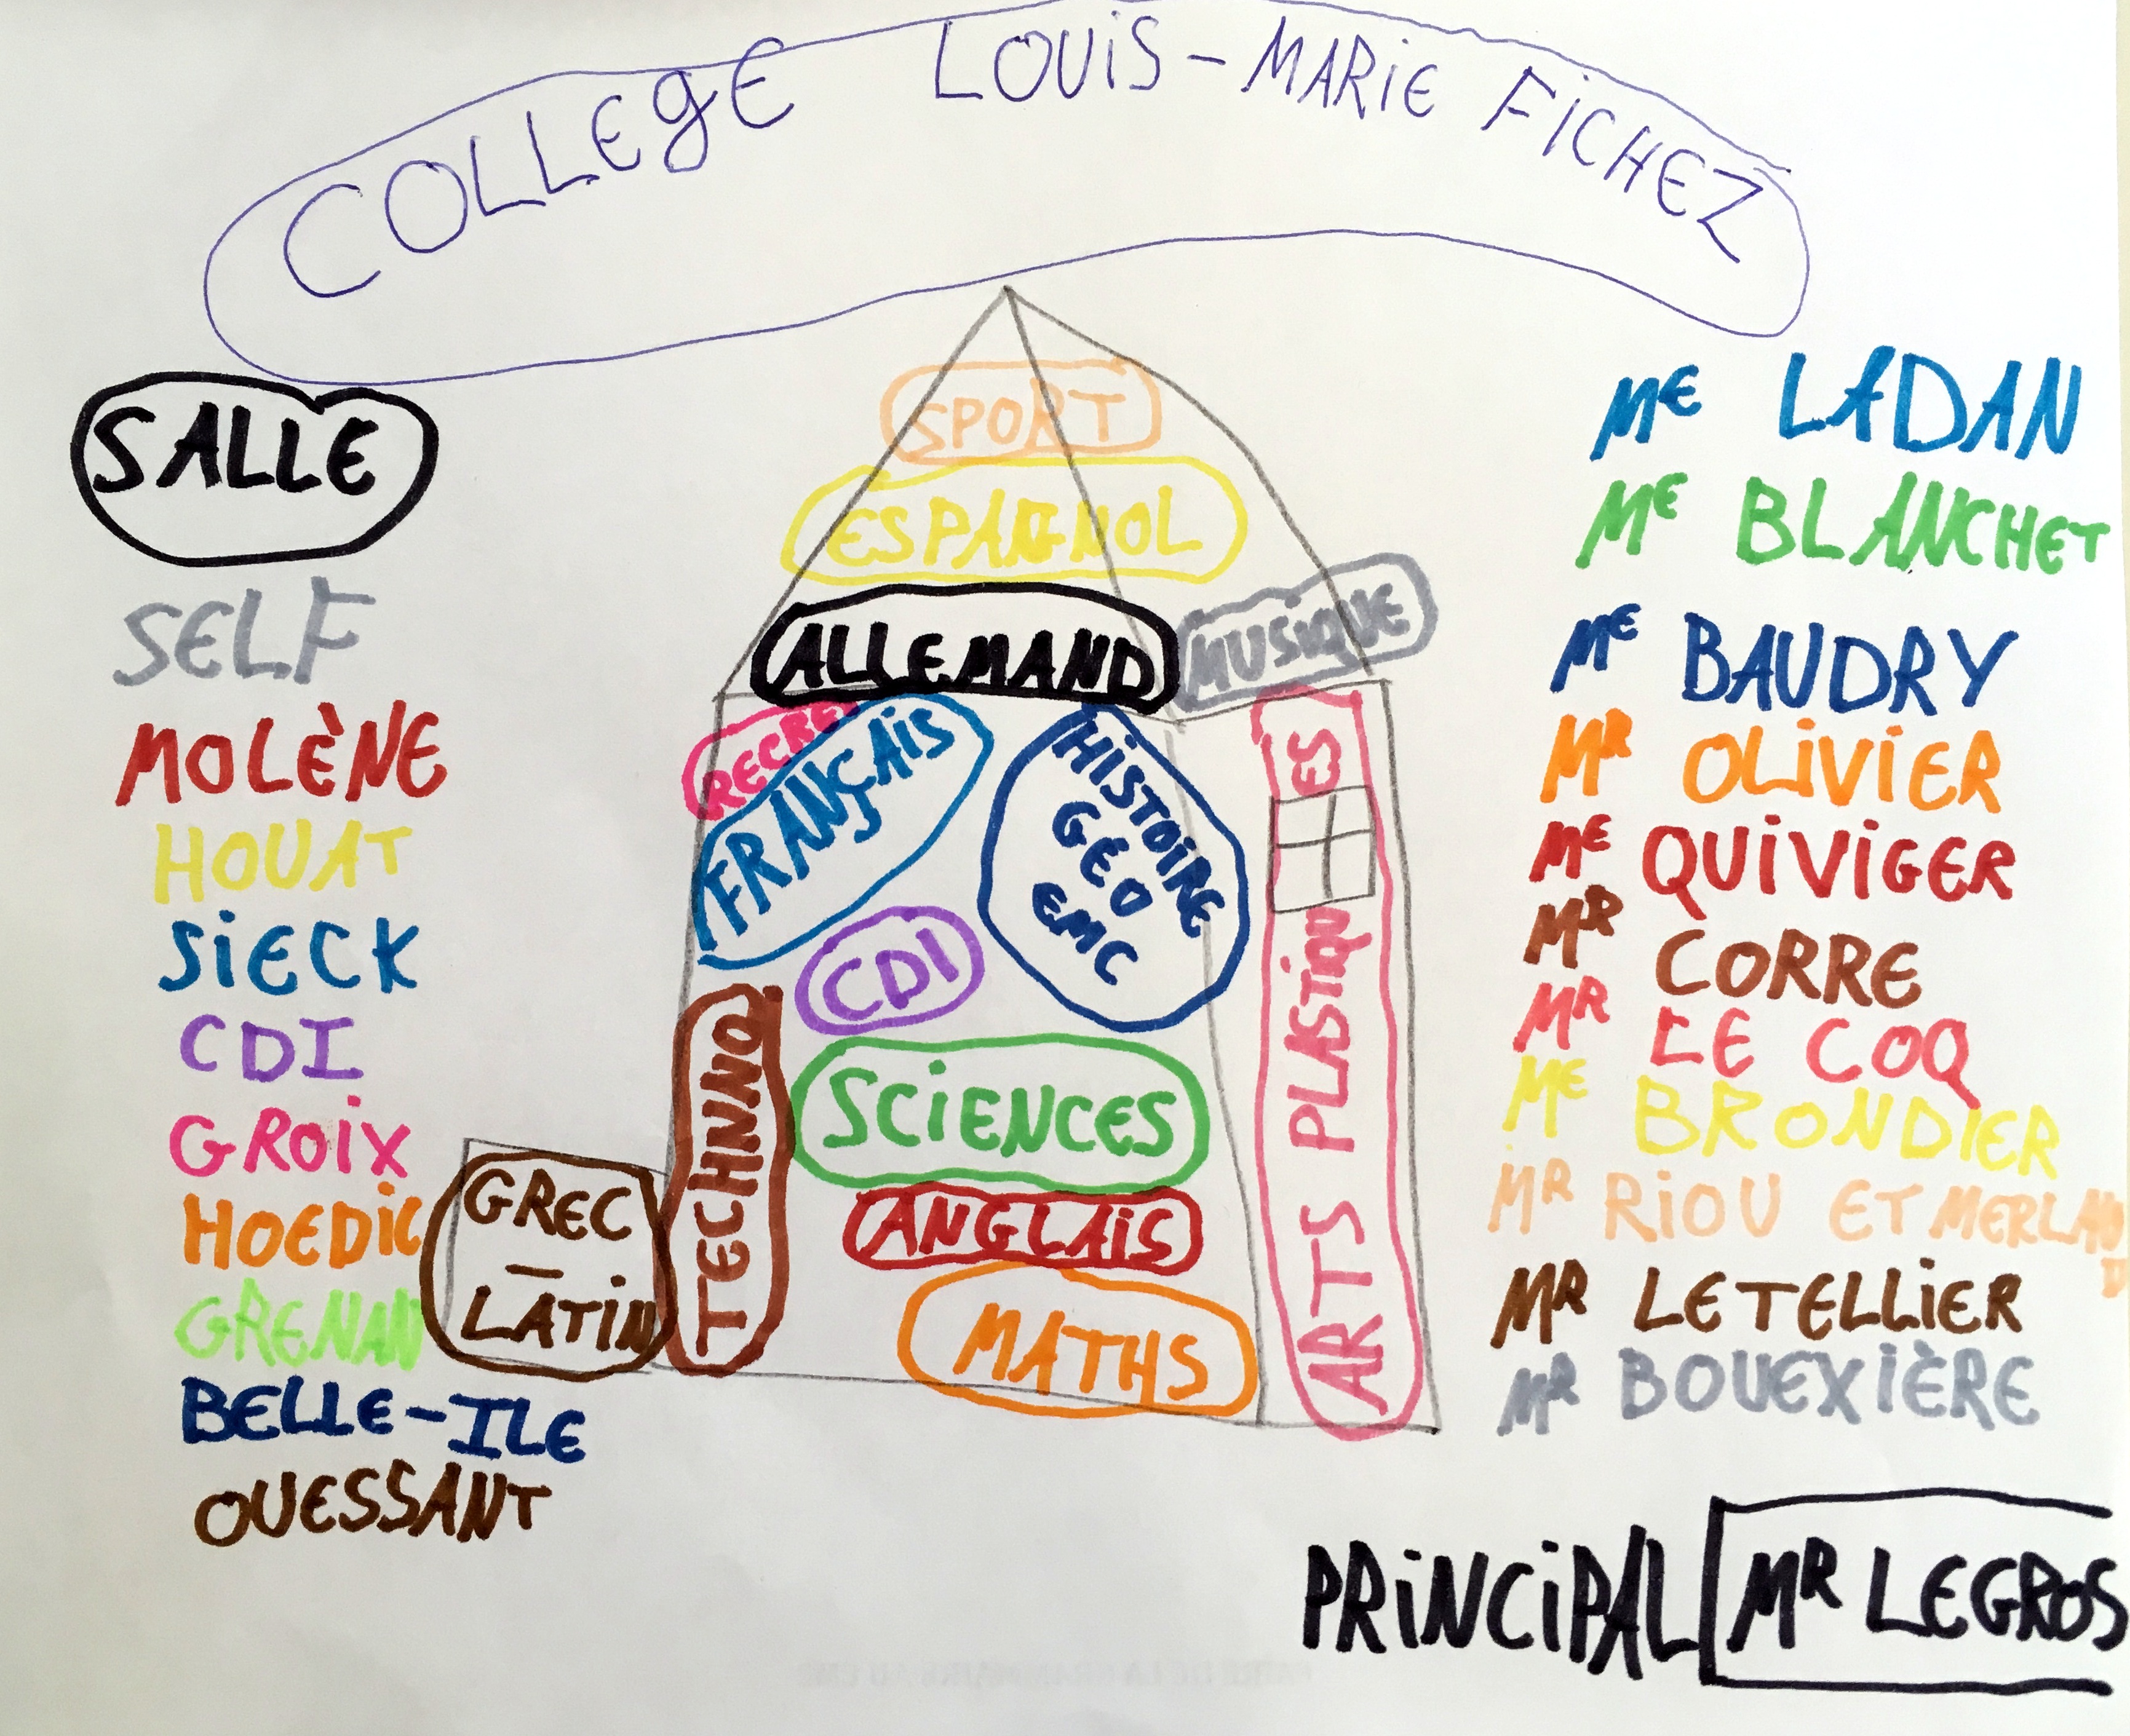 COLLEGE LOUiS-MARiE FiCHEZ
SALLE
SELF
MOLÈNE
HOUAT
SiECK
CDI
GROiX
HOEDiC
GRENAN
BELLE-ILE
OUESSANT
SPORT
ESPAGNOL
ALLEMAND
MUSiQUE
RECRE
FRANÇAiS
HiSTOiRE
GEO
EMC
CDI
TECHNNO
SCiENCES
GREC
-
LATiN
ANGLAiS
MATHS
ARTS PLASTiQUES
ME LADAN
ME BLANCHET
ME BAUDRY
MR OLiViER
ME QUiViGER
MR CORRE
MR LE COQ
ME BRONDIER
MR RiOU ET MERLAUD
MR LETELLiER
MR BOUEXiÈRE
PRiNCiPAL MR LEGROS